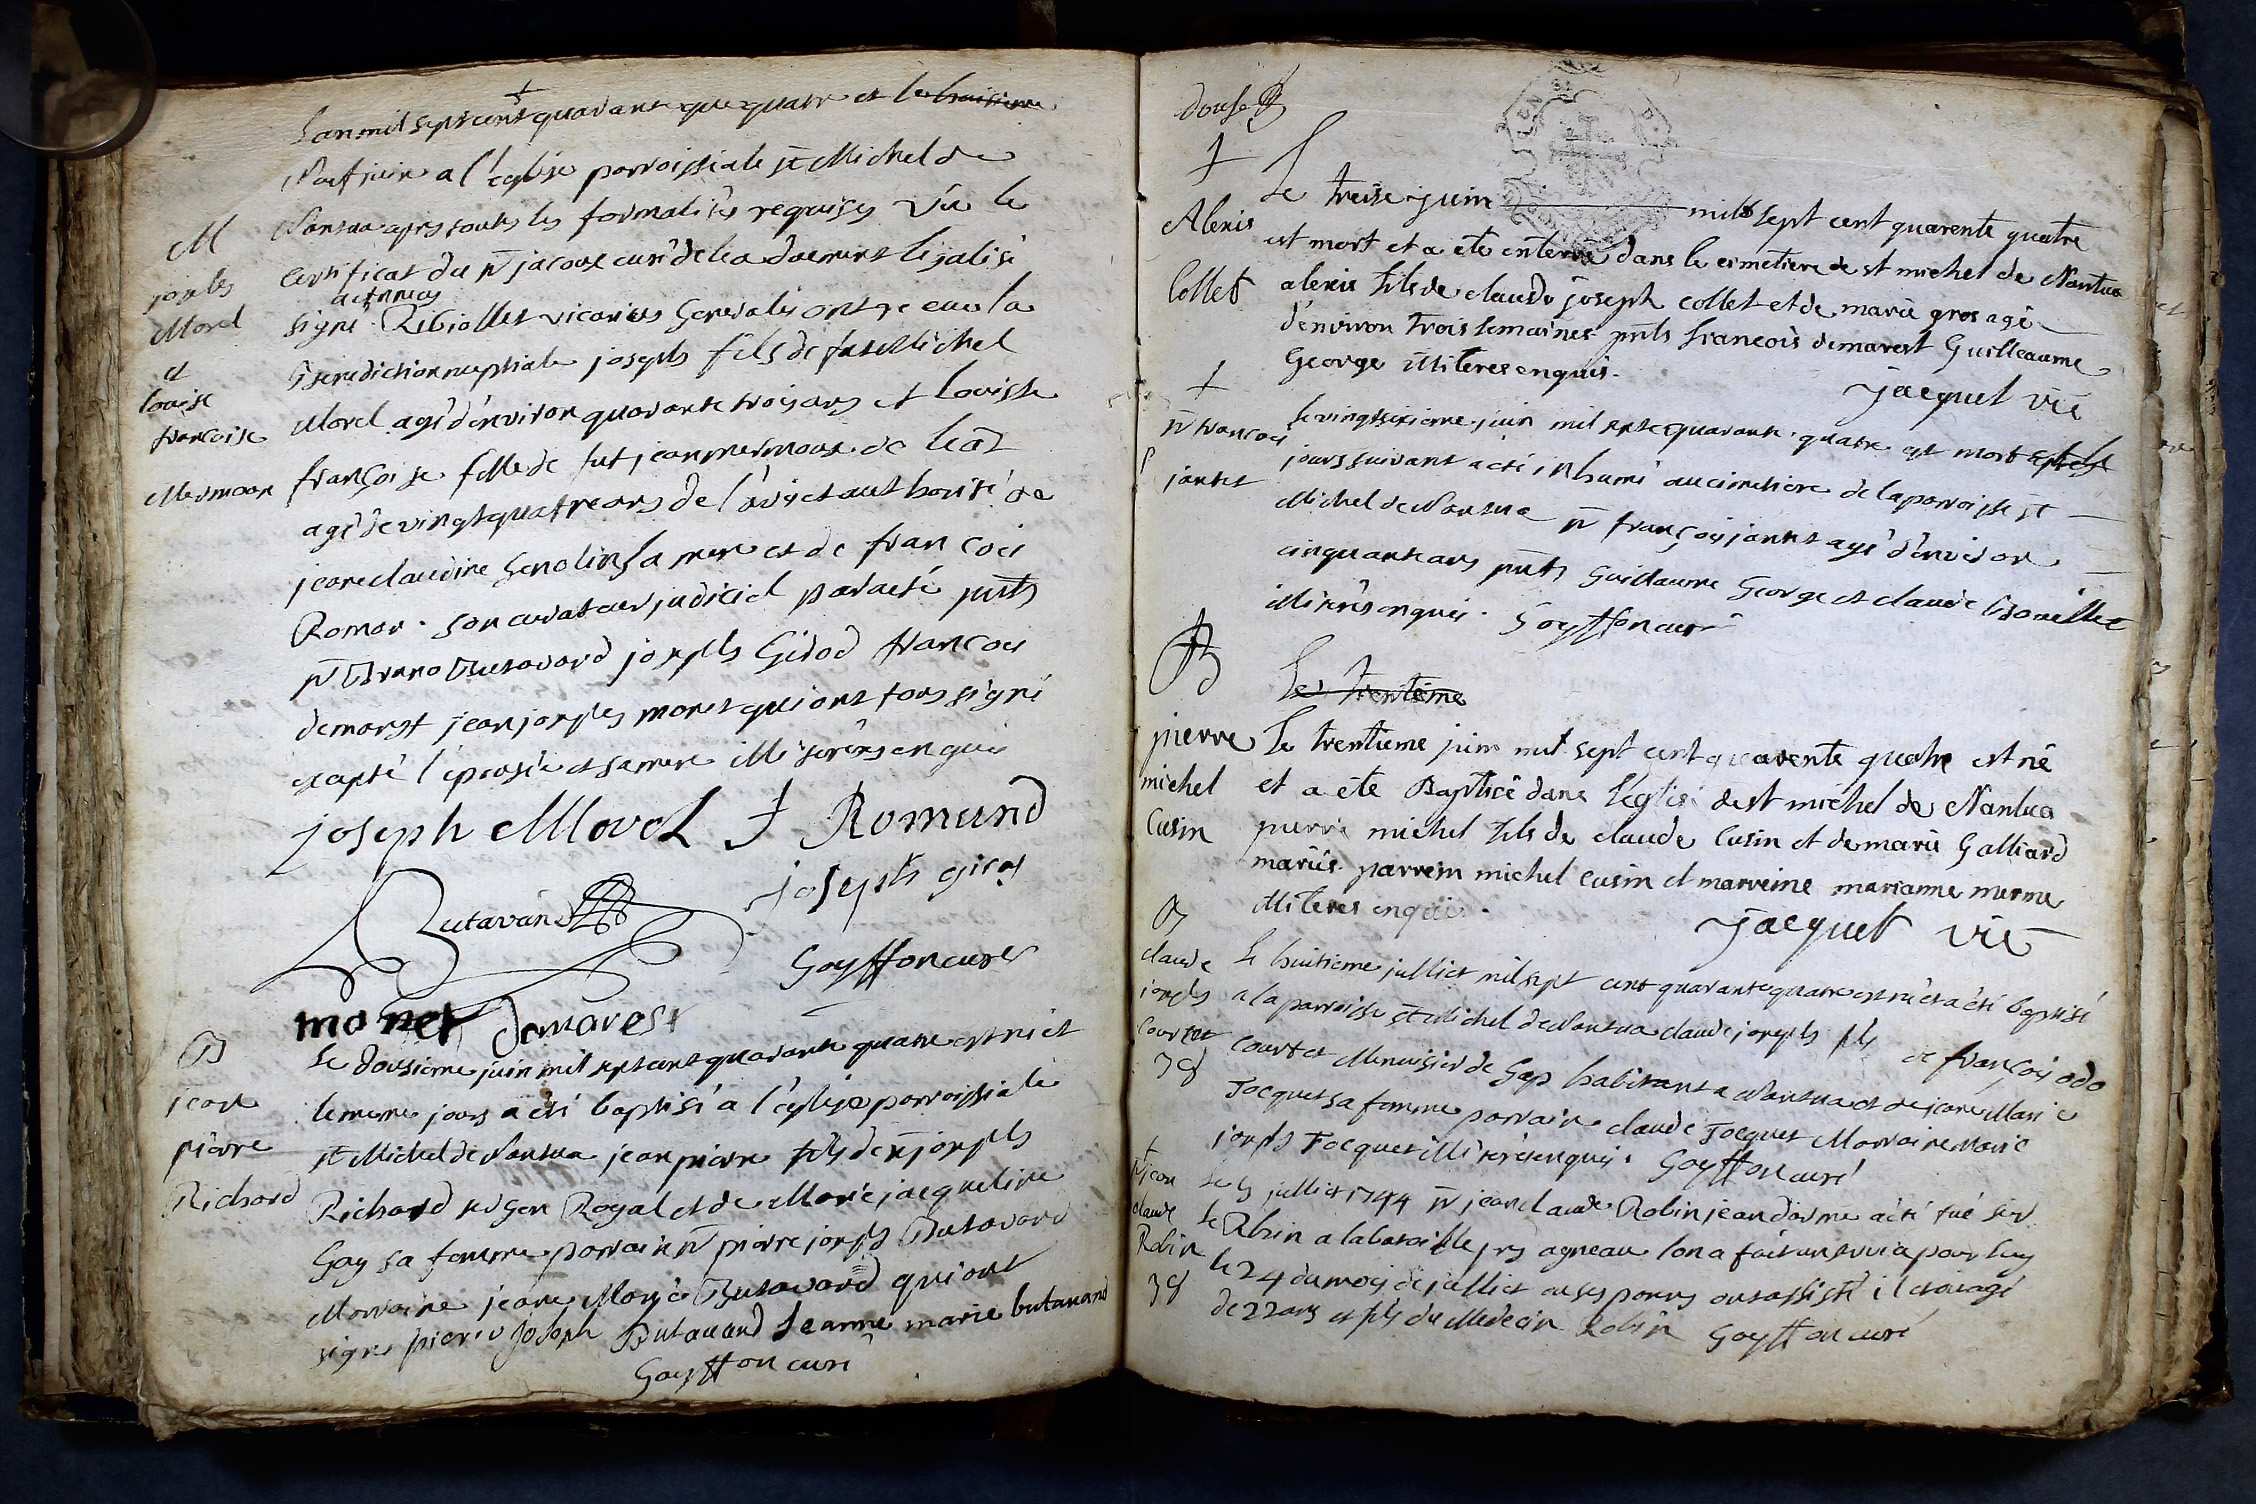 L'an mil sept cent quarante que quatre et le huitieme
a l'eglise parroissiale st Michel de
M
Nantua apres toutes les formalités requises Vu le
certificat du sr jacoux curé de lea duement legalisé
joseph
Morel
signé Ribiollet vicaires generalis ont receu la
et
louise
francoise
Mermoux
Benediction nuptiale joseph fils de fut Michel
Morel agé d'environ quarante trois ans et Louisse
françoise fille de fut jean mermoux de leaz
agé de vingt quatre ans de l'avis et authorité de
jeane claudine Genolin sa mere et de francois
Romon son curateur judiciel par acté pnts
sr Bruno Butavard joseph Girod francois
demarest jean joseph monet qui ont tous signé
excepté l'epousée et sa mere illiterés enquis
joseph Morel f Romund
Butavand joseph girod
Goyffon curé
monet demarest
B
jean
pierre
Richard
Le dousieme juin mil sept cent quarante quatre est né et
le meme jours a été baptisé a l'eglise parroissiale
st Michel de Nantua jean pierre fils de sr joseph
Richard sergen Royal et de Marie jacqueline
Gay sa femme parrain sr pierre joseph Butavard
Marraine jeane Marie Butavard qui ont
signe pierre Joseph Butavand Jeanne marie butavand
Goyffon curé
douse
†
Alexis
Collet
Le treise juin mil sept cent quarente quatre
est mort et a ete enterré dans le cimetiere de st michel de Nantua
alexis fils de claude joseph collet et de marie gros agé
d'environ trois semaines pnts francois demarest Guilleaume
George illiteres enquis.
jacquet vic
†
sr francois
jantet
Le vingt sixieme juin mil sept cequarante quatre est mort et le
jours suivant a été inhumé au cimetiere de la parroisse st
Michel de Nantua sr françois jantet agé d'environ
cinquante ans pnts Guillaume George et claude
illiterés enquis. Goyffon curé
B
Le trentieme
pierre
michel
Cusin
Le trentieme juin mil sept cent quarente quatre est né
et a ete Baptisé dans l'eglise de st michel de Nantua
pierre michel fils de claude Cusin et de marie Galliard
mariés parrein michel cusin et marreine marianne merme
illiteres enquis.
jacquet vic
B
claude
joseph
Courtet
Le huitieme julliet mil sept cent quarante quatre est né et a été baptisé
a la parroisse st Michel de Nantua claude joseph fils de françois odo
Courtet Menuisier de Gap habitant a Nantua et de jeane Marie
Jocquet sa femme parrain claude Jocquet Marraine Marie
joseph Jocquet illiterés enquis. Goyffon curé
†
sr jean
claude
Robin
Le julliet 1744 sr jean claude Robin jeandarme a été tué sur
le Rhin a la bataille pres agneau lon a fait un servi a pour luy
le 24 du mois de julliet ou ses parens ont assisté il etoit agé
de 22 ans et fils du Medecin Robin Goyffon curé